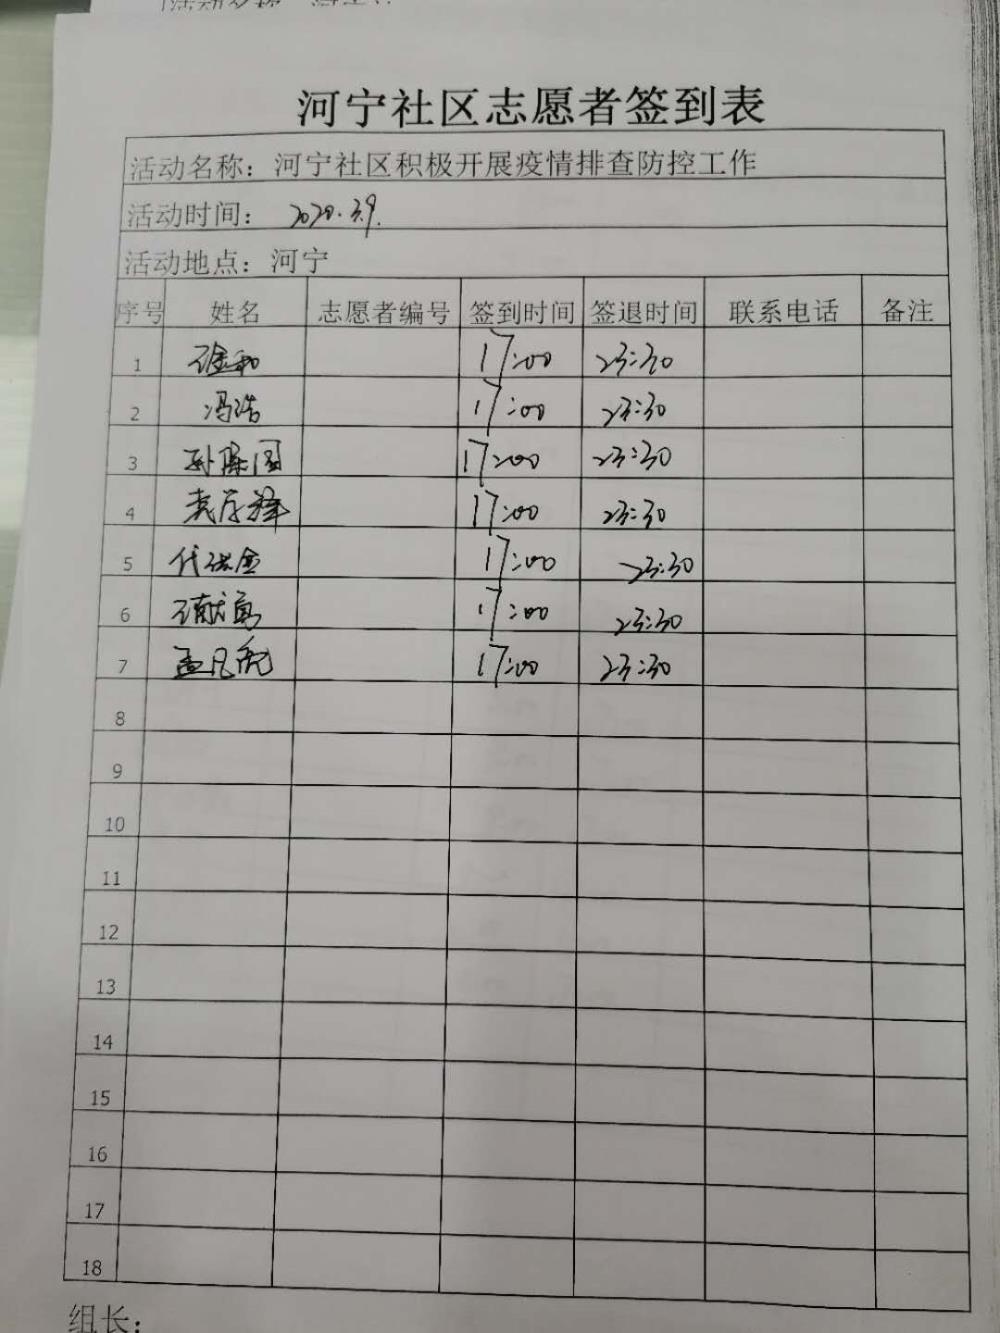 河宁社区志愿者签到表
活动名称：河宁社区积极开展疫情排查防控工作
活动时间： 2020.3.9.
活动地点：河宁
序号 姓名 志愿者编号 签到时间 签退时间 联系电话 备注
1 17:00 23:30
2 冯浩 17:00 23:30
3 孙 国 17:00 23:30
4 17:00 23:30
5 代 17:00 23:30
6 王献 17:00 23:30
7 孟凡 17:00 23:30
8
9
10
11
12
13
14
15
16
17
18
组长：